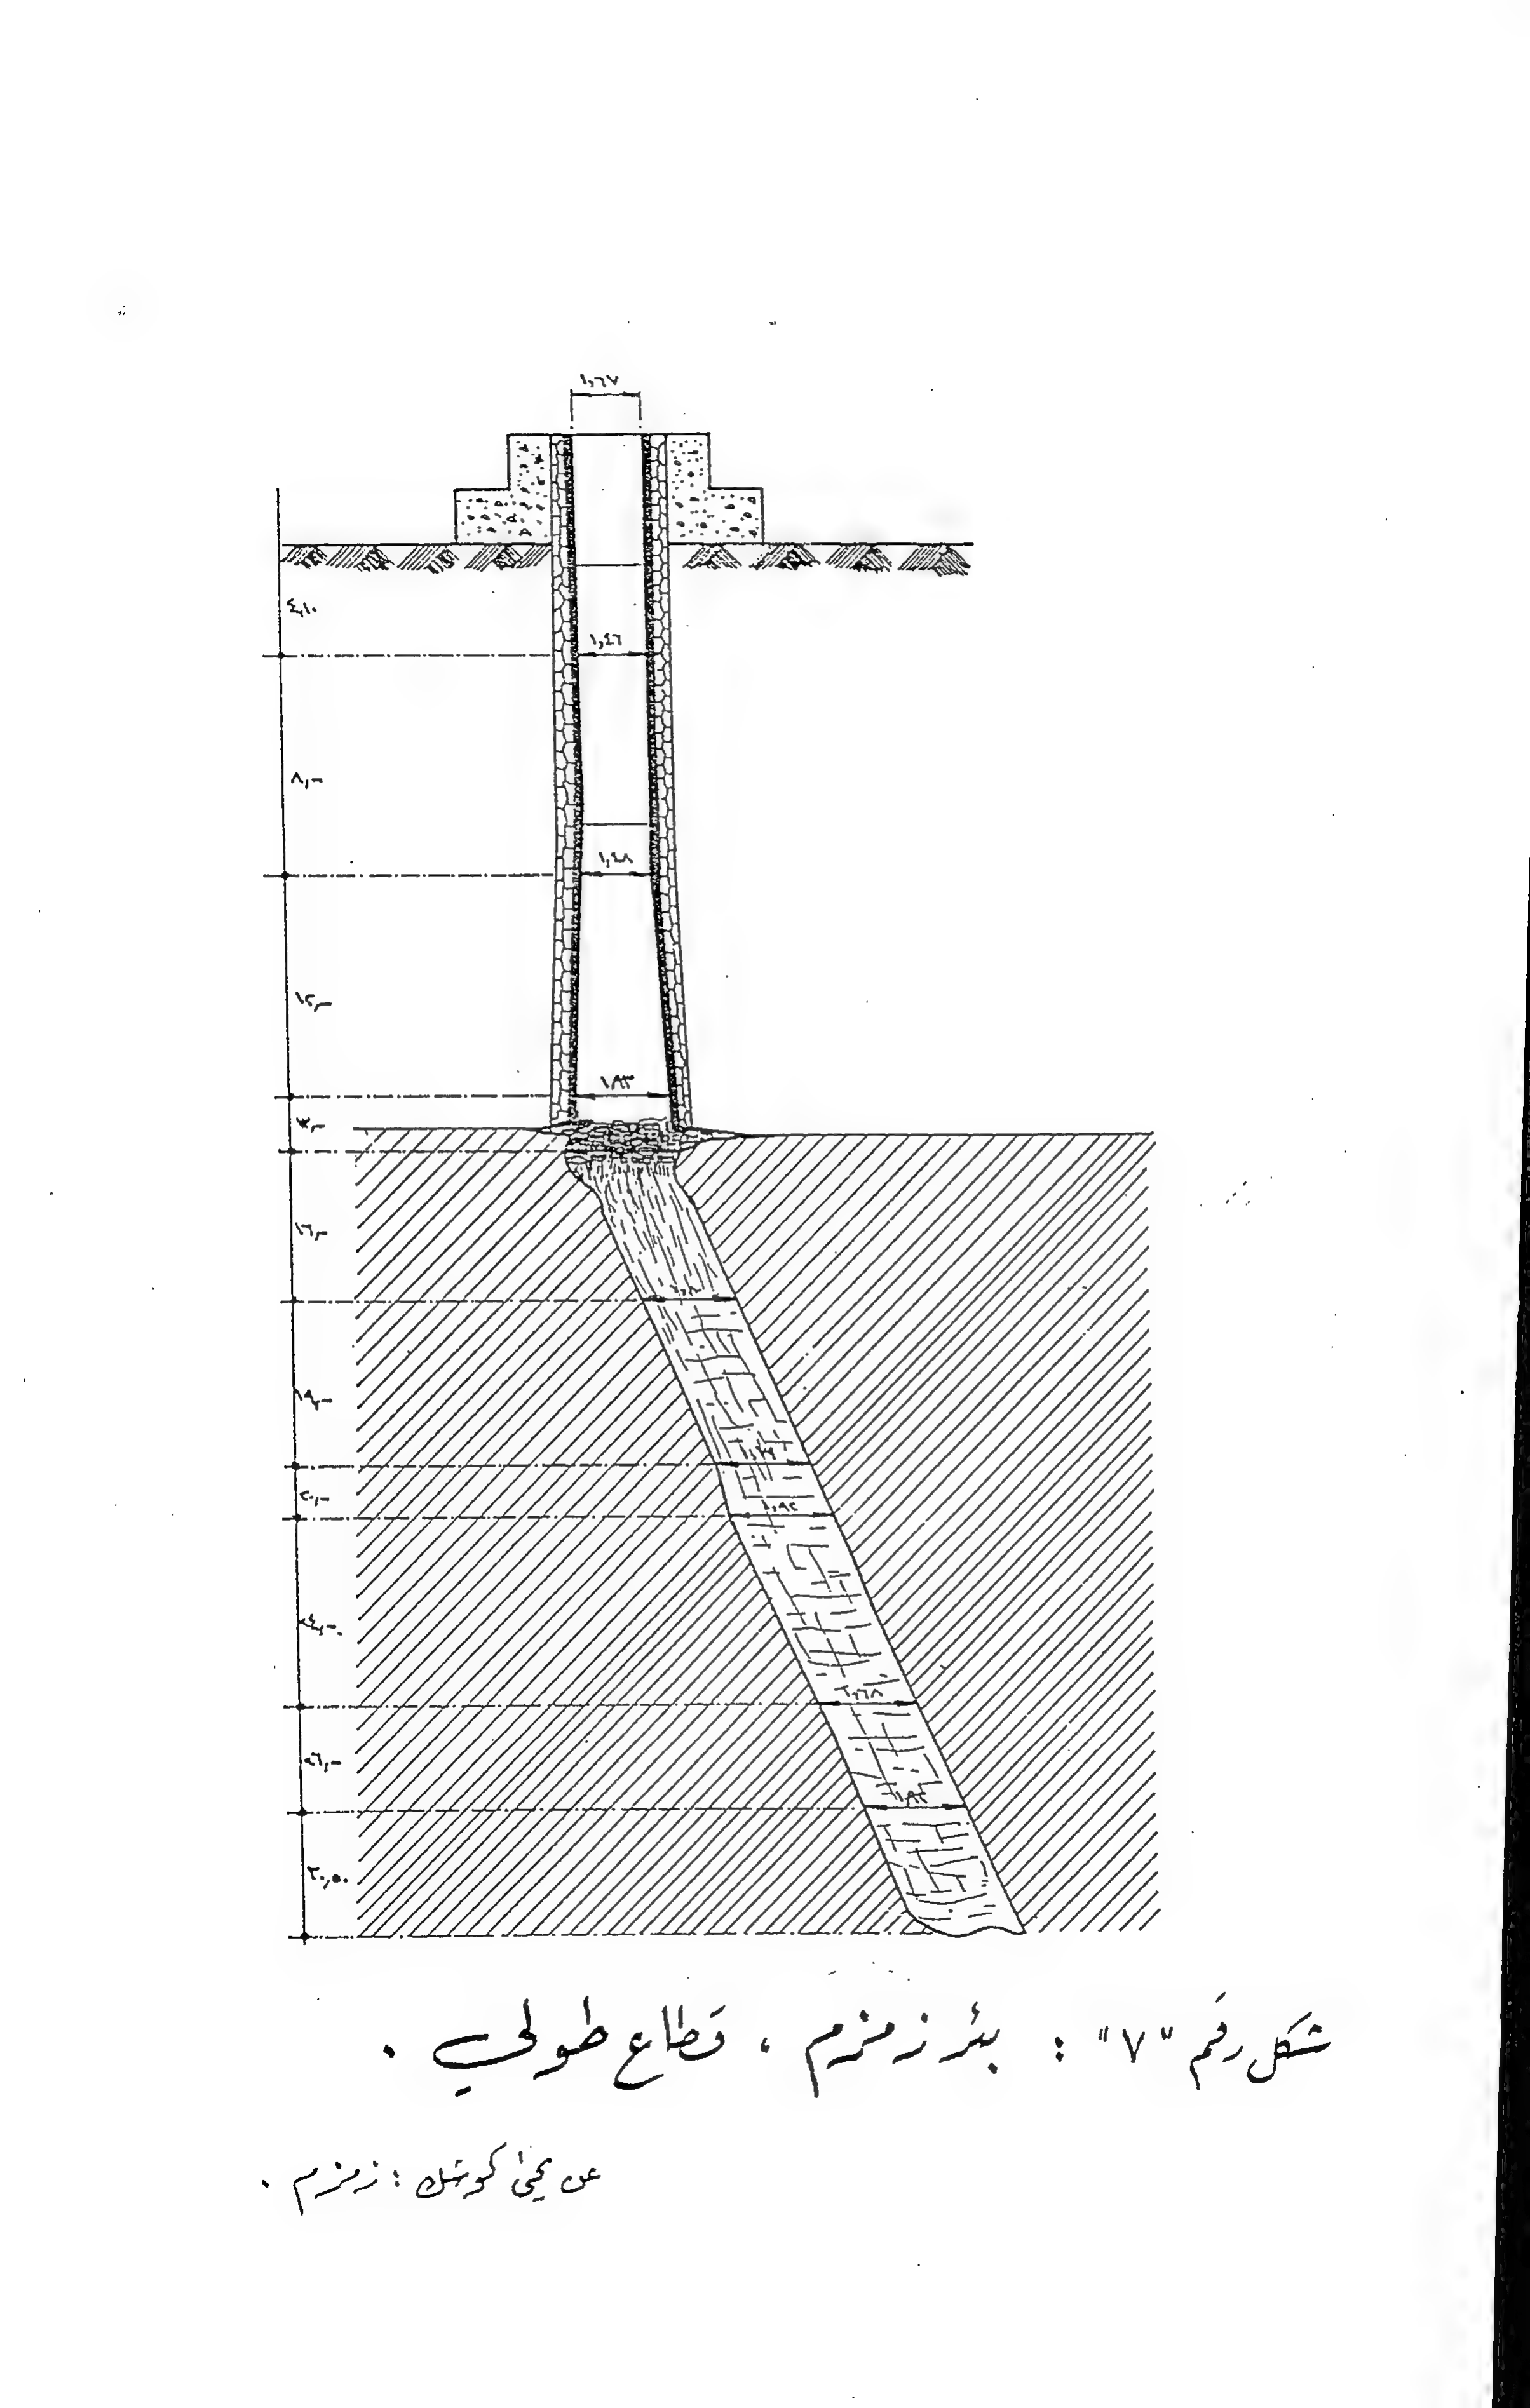 ١,٦٧
٤,١٠
١,٤٦
٨,-
١,٤٨
١٢,-
١,٨٣
١٦,-
١٩,-
١,٩٢
٢٤,٠٠
٢,٦٨
٢٦,-
١,٨٢
٣٠,٥٠
شكل رقم "٧" : بئر زمزم ، قطاع طولي .
عن يحيى كوشك : زمزم .